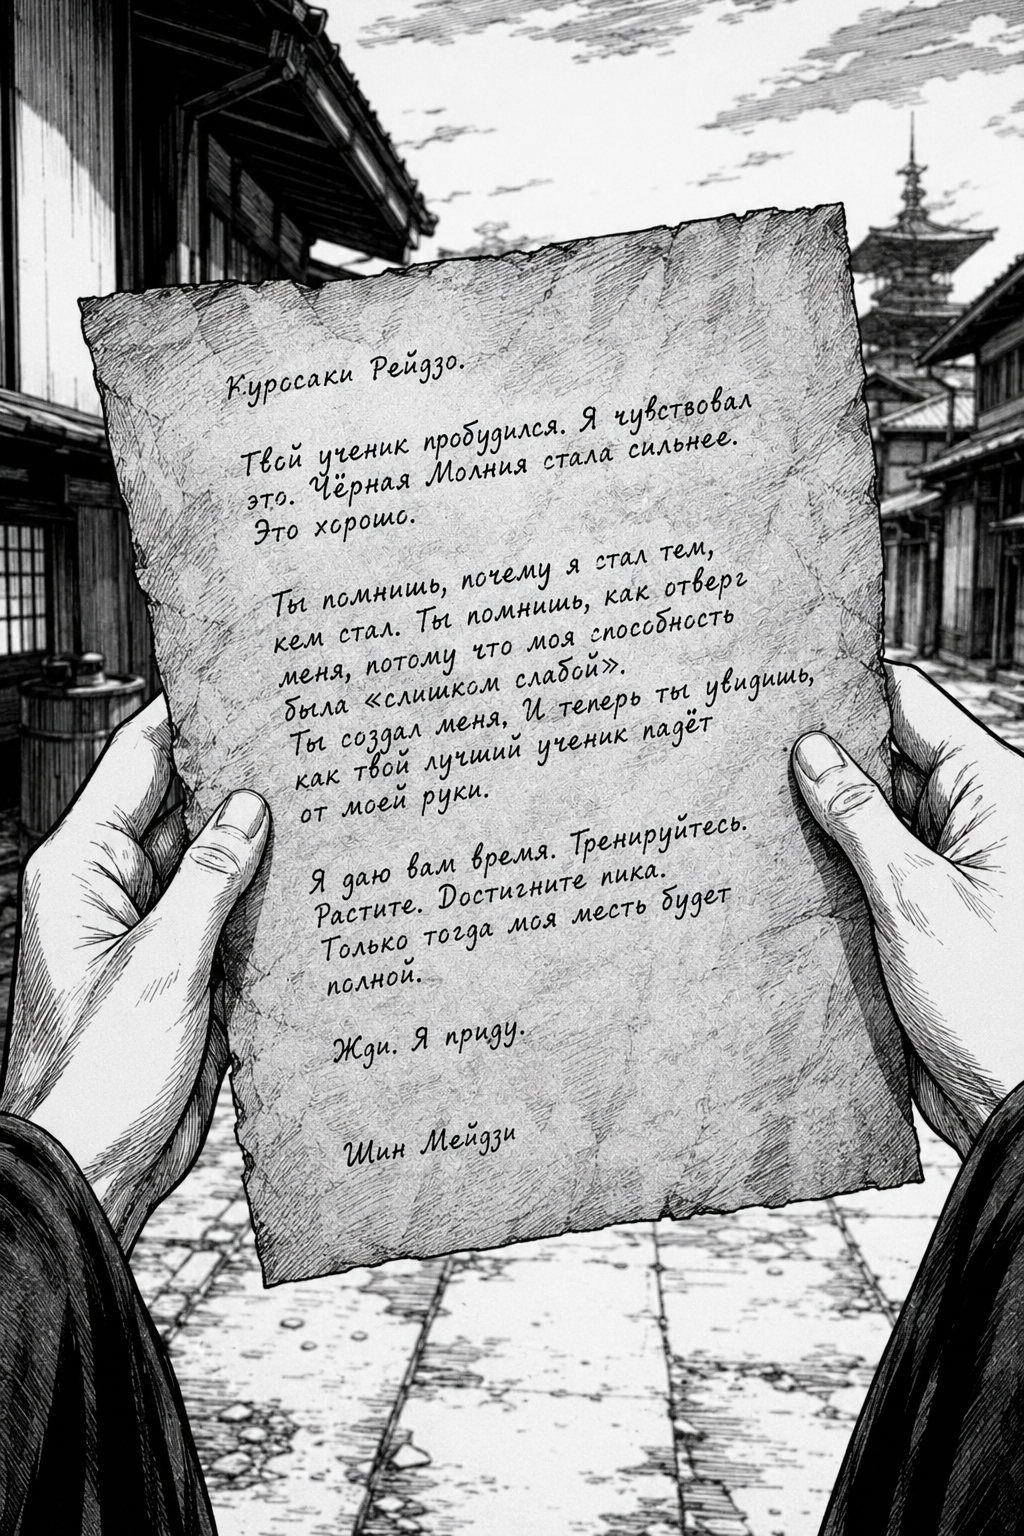 Куросаки Рейдзо.
Твой ученик пробудился. Я чувствовал
это. Чёрная Молния стала сильнее.
Это хорошо.
Ты помнишь, почему я стал тем,
кем стал. Ты помнишь, как отверг
меня, потому что моя способность
была «слишком слабой».
Ты создал меня. И теперь ты увидишь,
как твой лучший ученик падёт
от моей руки.
Я даю вам время. Тренируйтесь.
Растите. Достигните пика.
Только тогда моя месть будет
полной.
Жди. Я приду.
Шин Мейдзи